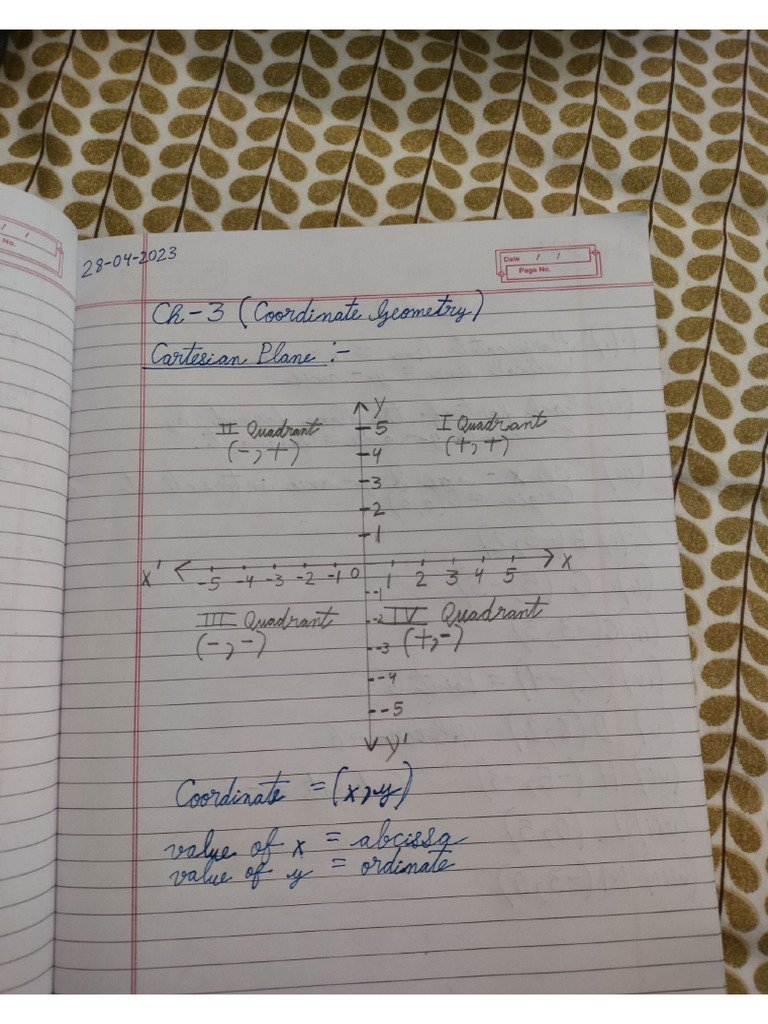 No.
28-04-2023
Date / /
Page No.
Ch-3 (Coordinate Geometry)
Cartesian Plane :-
Y
II Quadrant
I Quadrant
(-, +)
(+, +)
5
4
3
2
1
X' -5 -4 -3 -2 -1 0 1 2 3 4 5 X
-1
III Quadrant
-2 IV Quadrant
(-, -)
-3 (+, -)
-4
-5
Y'
Coordinate = (x, y)
value of x = abcissa
value of y = ordinate